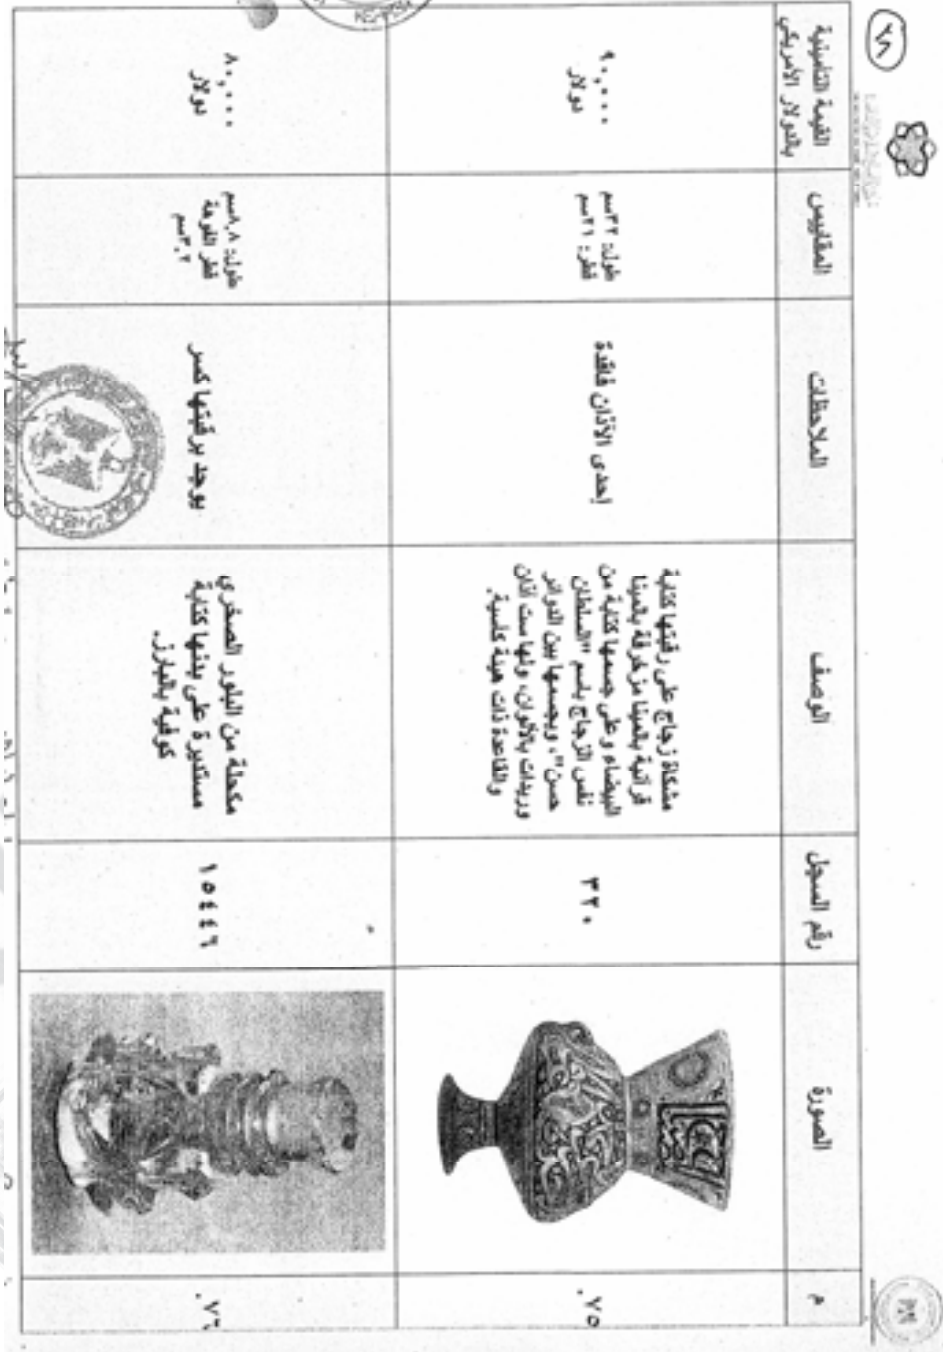 م
الصورة
رقم السجل
الوصف
الملاحظات
المقاييس
القيمة التأمينية
بالدولار الأمريكي
.٧٥
٣٢٠
مشكاة زجاج على رقبتها كتابة
قرآنية بالمينا مزخرفة بالمينا
البيضاء وعلى جسمها كتابة من
نفس الزجاج باسم "السلطان
حسن"، وبجسمها بين الدوائر
وريدات بالألوان، ولها ست آذان
والقاعدة ذات هيئة كأسية.
إحدى الآذان فاقدة
طول: ٣٢سم
قطر: ٢١سم
٩٠,٠٠٠
دولار
.٧٦
١٥٤٤٦
مكحلة من البلور الصخري
مستديرة على بدنها كتابة
كوفية بالبارز.
يوجد برقبتها كسر
طول: ٨,٨سم
قطر الفوهة
٣,٢سم
٨٠,٠٠٠
دولار